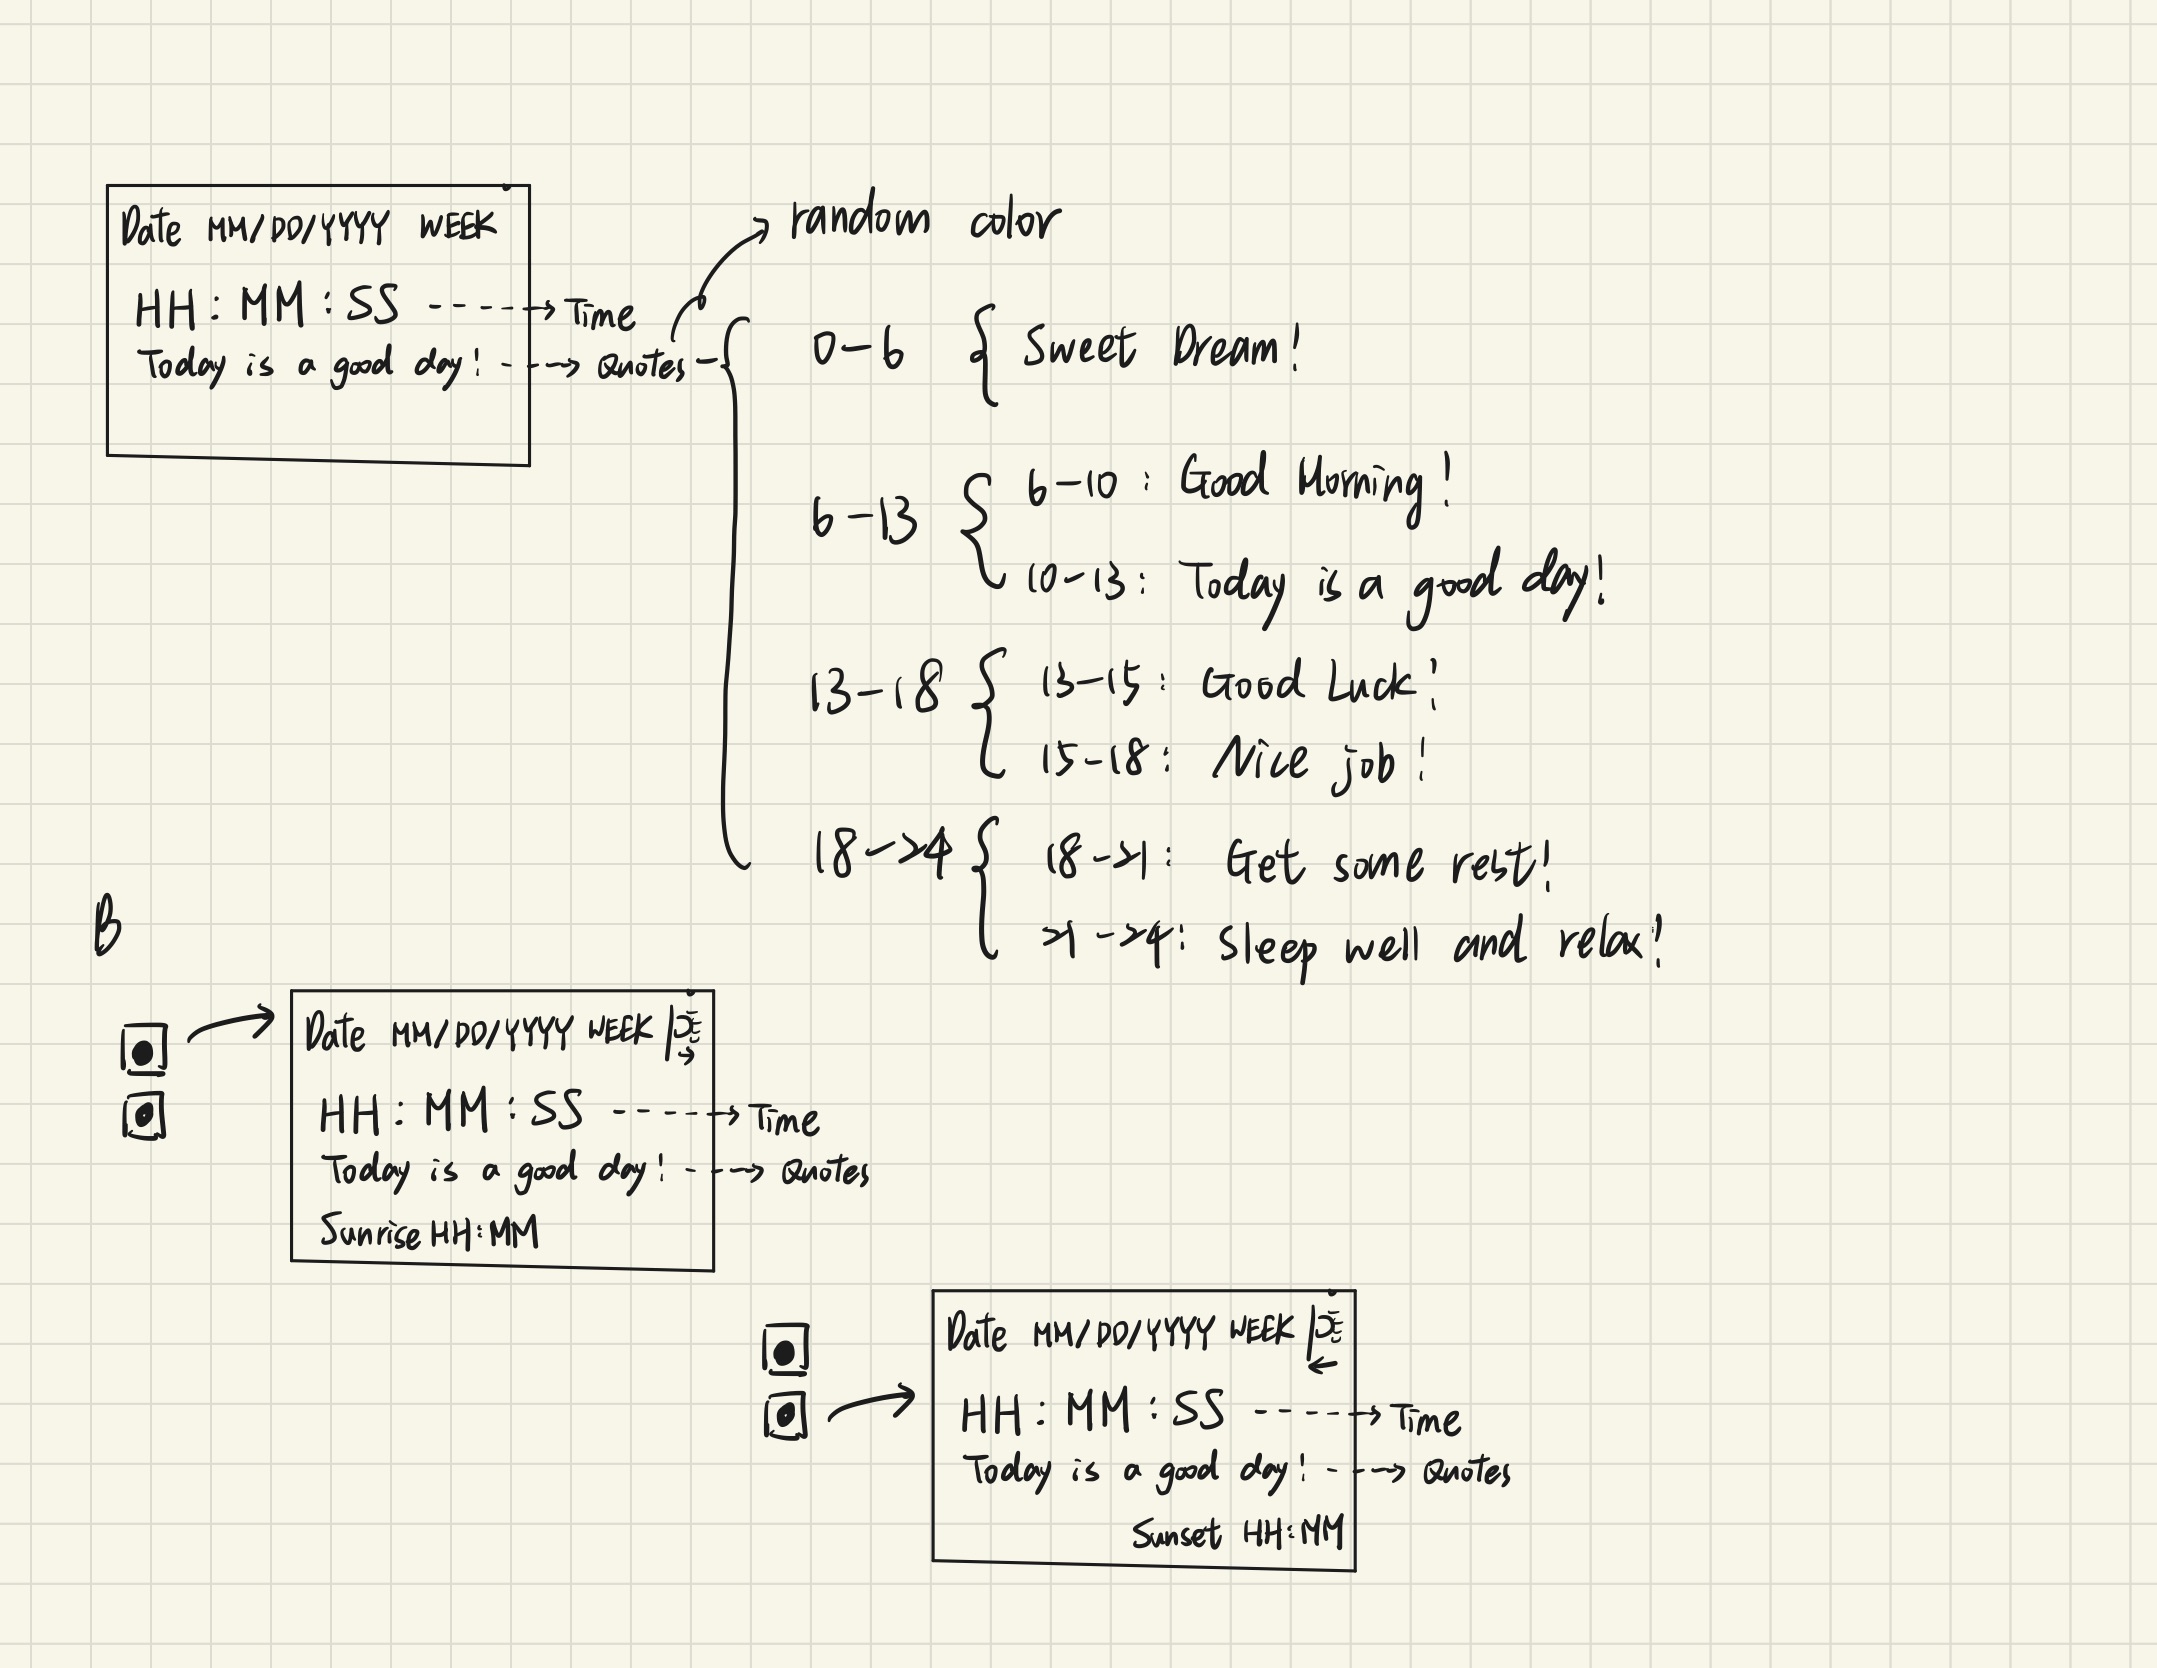 Date MM/DD/YYYY WEEK
HH:MM:SS ----> Time
Today is a good day! ----> Quotes
random color
0-6 { Sweet Dream!
6-13 { 6-10: Good Morning!
10-13: Today is a good day!
13-18 { 13-15: Good Luck!
15-18: Nice job!
18-24 { 18-21: Get some rest!
21-24: Sleep well and relax!
B
Date MM/DD/YYYY WEEK
HH:MM:SS ----> Time
Today is a good day! ----> Quotes
Sunrise HH:MM
Date MM/DD/YYYY WEEK
HH:MM:SS ----> Time
Today is a good day! ----> Quotes
Sunset HH:MM